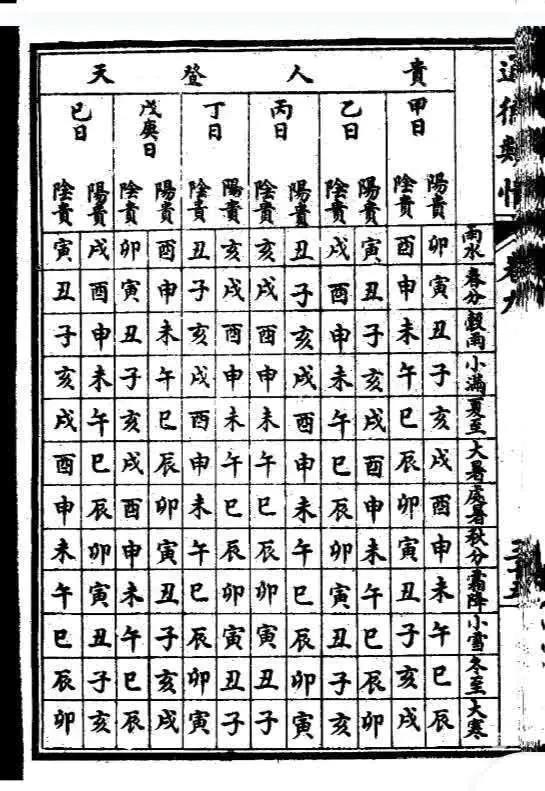 通德類情
卷九
貴人登天
雨水 春分 穀雨 小滿 夏至 大暑 處暑 秋分 霜降 小雪 冬至 大寒
甲日
陽貴 卯 寅 丑 子 亥 戌 酉 申 未 午 巳 辰
陰貴 酉 申 未 午 巳 辰 卯 寅 丑 子 亥 戌
乙日
陽貴 寅 丑 子 亥 戌 酉 申 未 午 巳 辰 卯
陰貴 戌 酉 申 未 午 巳 辰 卯 寅 丑 子 亥
丙日
陽貴 丑 子 亥 戌 酉 申 未 午 巳 辰 卯 寅
陰貴 亥 戌 酉 申 未 午 巳 辰 卯 寅 丑 子
丁日
陽貴 亥 戌 酉 申 未 午 巳 辰 卯 寅 丑 子
陰貴 丑 子 亥 戌 酉 申 未 午 巳 辰 卯 寅
戊庚日
陽貴 酉 申 未 午 巳 辰 卯 寅 丑 子 亥 戌
陰貴 卯 寅 丑 子 亥 戌 酉 申 未 午 巳 辰
巳日
陽貴 戌 酉 申 未 午 巳 辰 卯 寅 丑 子 亥
陰貴 寅 丑 子 亥 戌 酉 申 未 午 巳 辰 卯